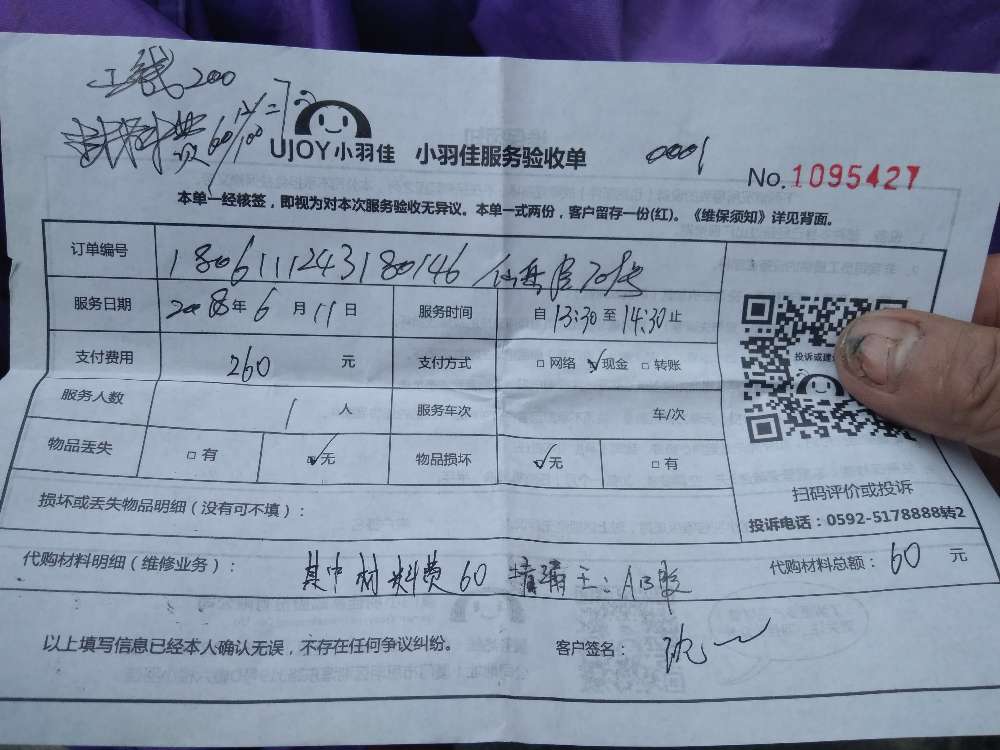 工钱200
材料费60
UJOY小羽佳 小羽佳服务验收单 0001 No.1095427
本单一经核签，即视为对本次服务验收无异议。本单一式两份，客户留存一份(红)。《维保须知》详见背面。
订单编号 1806111243180146
服务日期 2018年6月11日 服务时间 自13:30至14:30止
支付费用 260 元 支付方式 □网络 ☑现金 □转账
投诉或建议
服务人数 1 人 服务车次 车/次
物品丢失 □有 ☑无 物品损坏 ☑无 □有
扫码评价或投诉
损坏或丢失物品明细（没有可不填）：
投诉电话：0592-5178888转2
代购材料明细（维修业务）： 其中材料费60 堵漏王：AB胶 代购材料总额：60 元
以上填写信息已经本人确认无误，不存在任何争议纠纷。 客户签名： 沈一